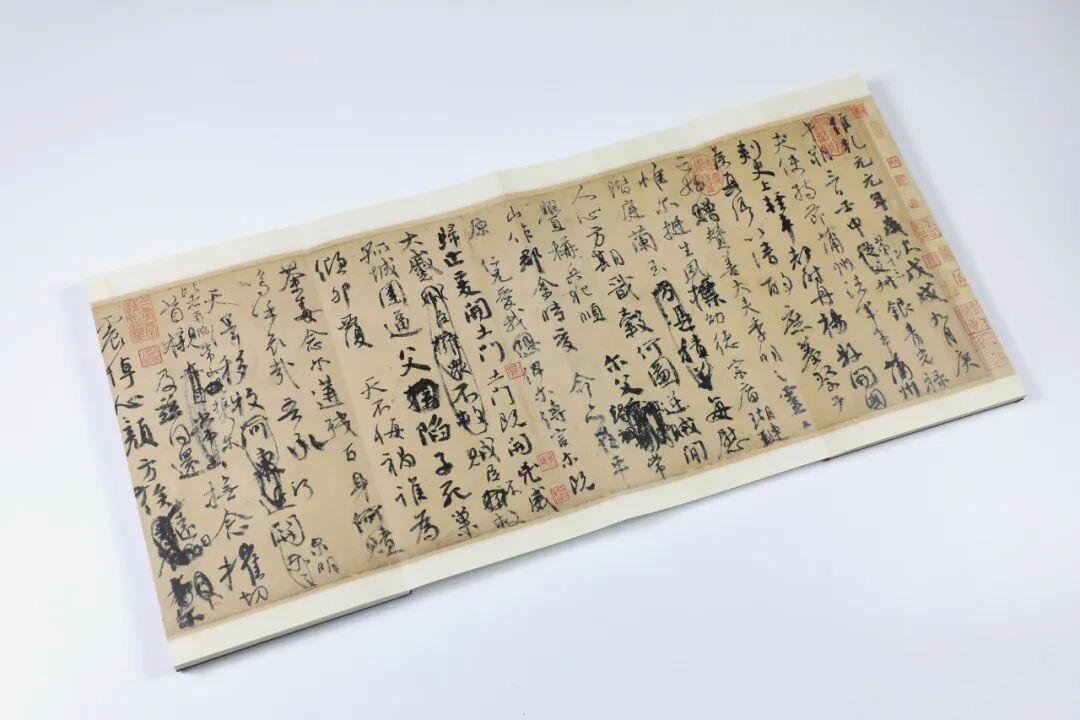 維乾元元年歲次戊戌九月庚
午朔三日壬申第十三叔銀青光祿
夫使持節蒲州諸軍事蒲州
刺史上輕車都尉丹楊縣開國
侯真卿以清酌庶羞祭于
亡姪贈贊善大夫季明之靈曰
惟爾挺生夙標幼德宗廟瑚璉
階庭蘭玉方憑積善每慰
人心方期戩穀何圖逆賊閒
釁稱兵犯順爾父竭誠常
山作郡余時受命亦在平
原仁兄愛我俾爾傳言爾既
歸止爰開土門土門既開兇威
大蹙賊臣不救
孤城圍逼父陷子死巢
傾卵覆天不悔禍誰為
荼毒念爾遘殘百身何贖
嗚乎哀哉吾承
天澤移牧河關泉明
比者再陷常山携爾
首櫬及茲同還撫念摧切
震悼心顏方俟遠日